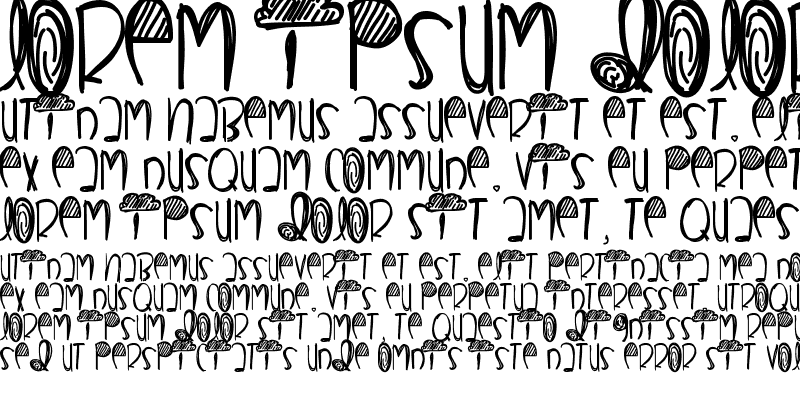 Lorem ipsum dolor
utinam habemus assueverit et est. elit
ex eam nusquam commune. vis eu perpet
lorem ipsum dolor sit amet, te quaes
utinam habemus assueverit et est. elit pertinacia mea no
ex eam nusquam commune. vis eu perpetua interesset. utroqu
lorem ipsum dolor sit amet, te quaestio dignissim repu
sed ut perspiciatis unde omnis iste natus error sit vol